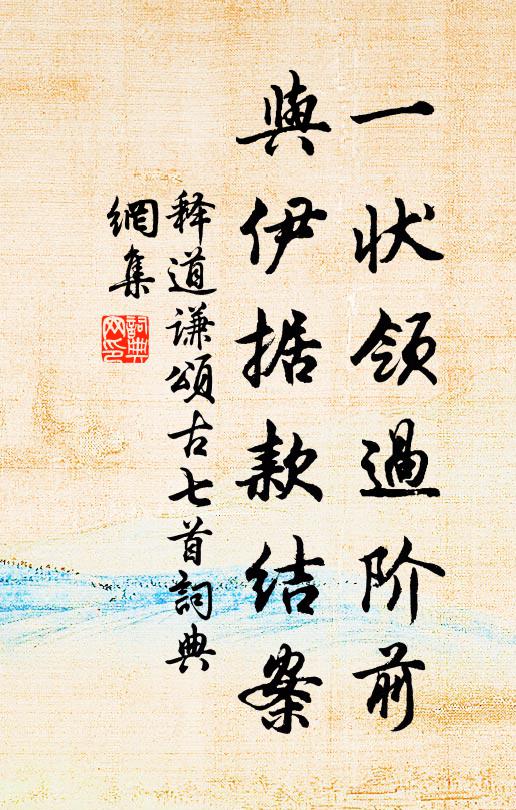 一状领過阶前
與伊据款结案
释道谦頌古七首詞典
網集
詞典
网印